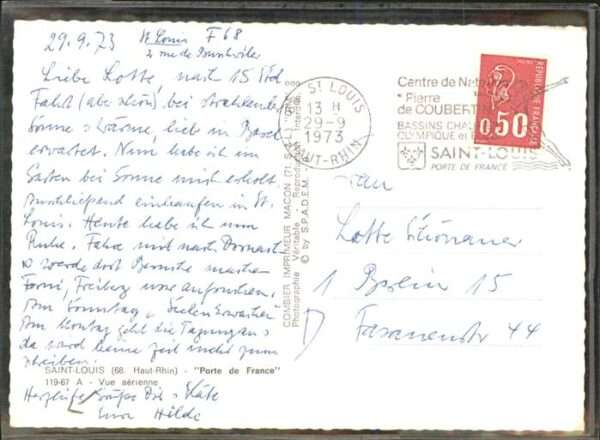 29.9.73 St. Louis F 68
2 rue de
Liebe Lotte, nach 15 Std
Fahrt (aber schön) bei strahlender
Sonne + Wärme, lieb in Basel
erwartet. Nun habe ich im
Garten bei Sonne mich erholt.
Anschließend einkaufen in St.
Louis. Heute habe ich nun
Ruhe. Fahre mit nach
werde dort Besuche machen
Freiburg usw
Am Sonntag
Am Montag geht die Tagung an
da wird keine Zeit mehr zum
schreiben.
SAINT-LOUIS (68. Haut-Rhin) - "Porte de France"
119-67 A - Vue aérienne
Herzliche Grüße Dir +
Hilde
COMBIER IMPRIMEUR MACON (71. S.-&-L.)
Photographie Véritable - Reprod. Interdite
© by S.P.A.D.E.M.
ST LOUIS
13 H
29-9
1973
HAUT-RHIN
Centre de
* Pierre
de COUBERTIN
BASSINS
OLYMPIQUE et
SAINT-LOUIS
PORTE DE FRANCE
RÉPUBLIQUE FRANÇAISE
0,50
An
Lotte Schönauer
1 Berlin 15
D
Fasanenstr 44